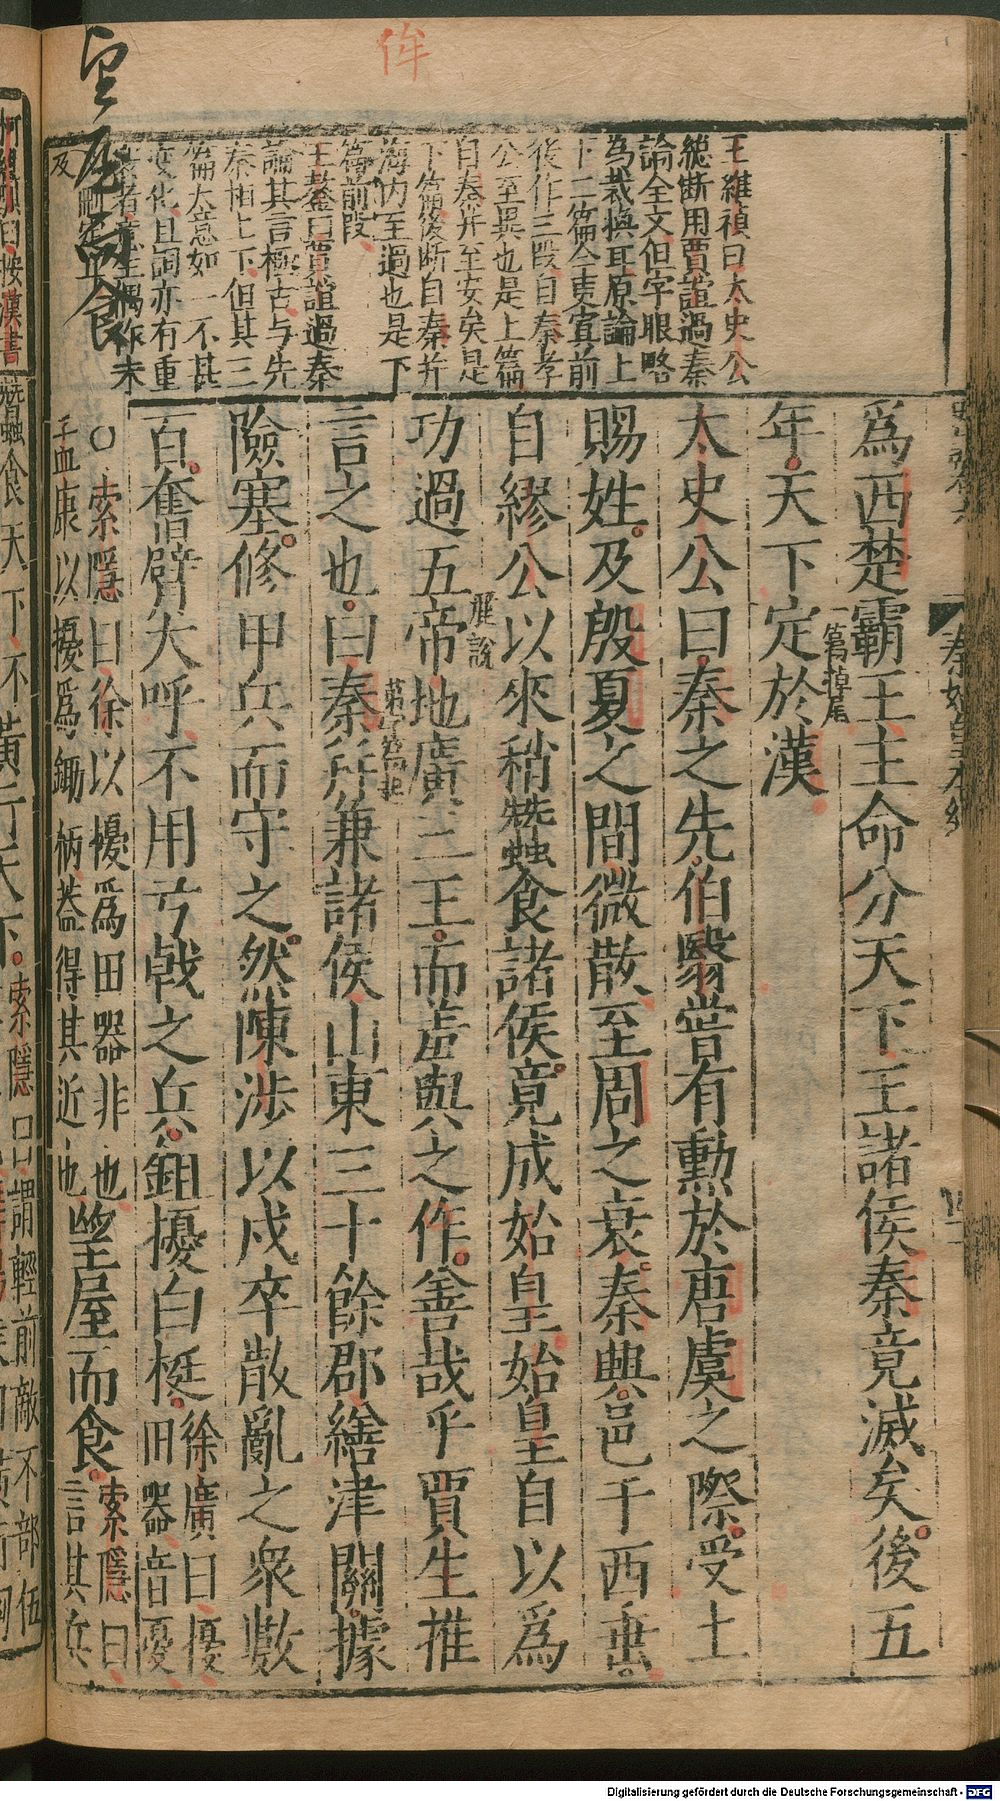 侔
王維禎曰太史公
總斷用賈誼過秦
論全文但字眼略
為裁換耳原論上
下二篇今吏寘前
後作三段自秦孝
公至異也是上篇
自秦并至安矣是
下篇後斷自秦并
海内至過也是下
篇前段
王鏊曰賈誼過秦
論其言極古与先
秦相上下但其三
篇大意如一不甚
變化且詞亦有重
者意生偶作未
及
望屋而食
秦始皇本紀
爲西楚霸王主命分天下王諸侯秦竟滅矣後五
年天下定於漢
一篇掉尾
太史公曰秦之先伯翳嘗有勳於唐虞之際受土
賜姓及殷夏之間微散至周之衰秦興邑于西垂
自繆公以來稍蠶食諸侯竟成始皇始皇自以爲
功過五帝地廣三王而羞與之作善哉乎賈生推
言之也曰秦并兼諸侯山東三十餘郡繕津關據
險塞修甲兵而守之然陳涉以戍卒散亂之衆數
百奮臂大呼不用弓戟之兵鉏櫌白梃
徐廣曰櫌
田器音憂
〇索隱曰徐以櫌爲田器非也
孟康以櫌爲鋤柄蓋得其近也
望屋而食
索隱曰
言其兵
蠶食天下不
橫行天下
索隱曰謂輕前敵不部伍